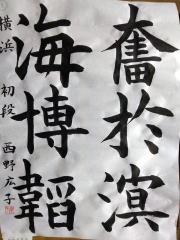 奮於溟
海博韜
横浜 初段 西野広子